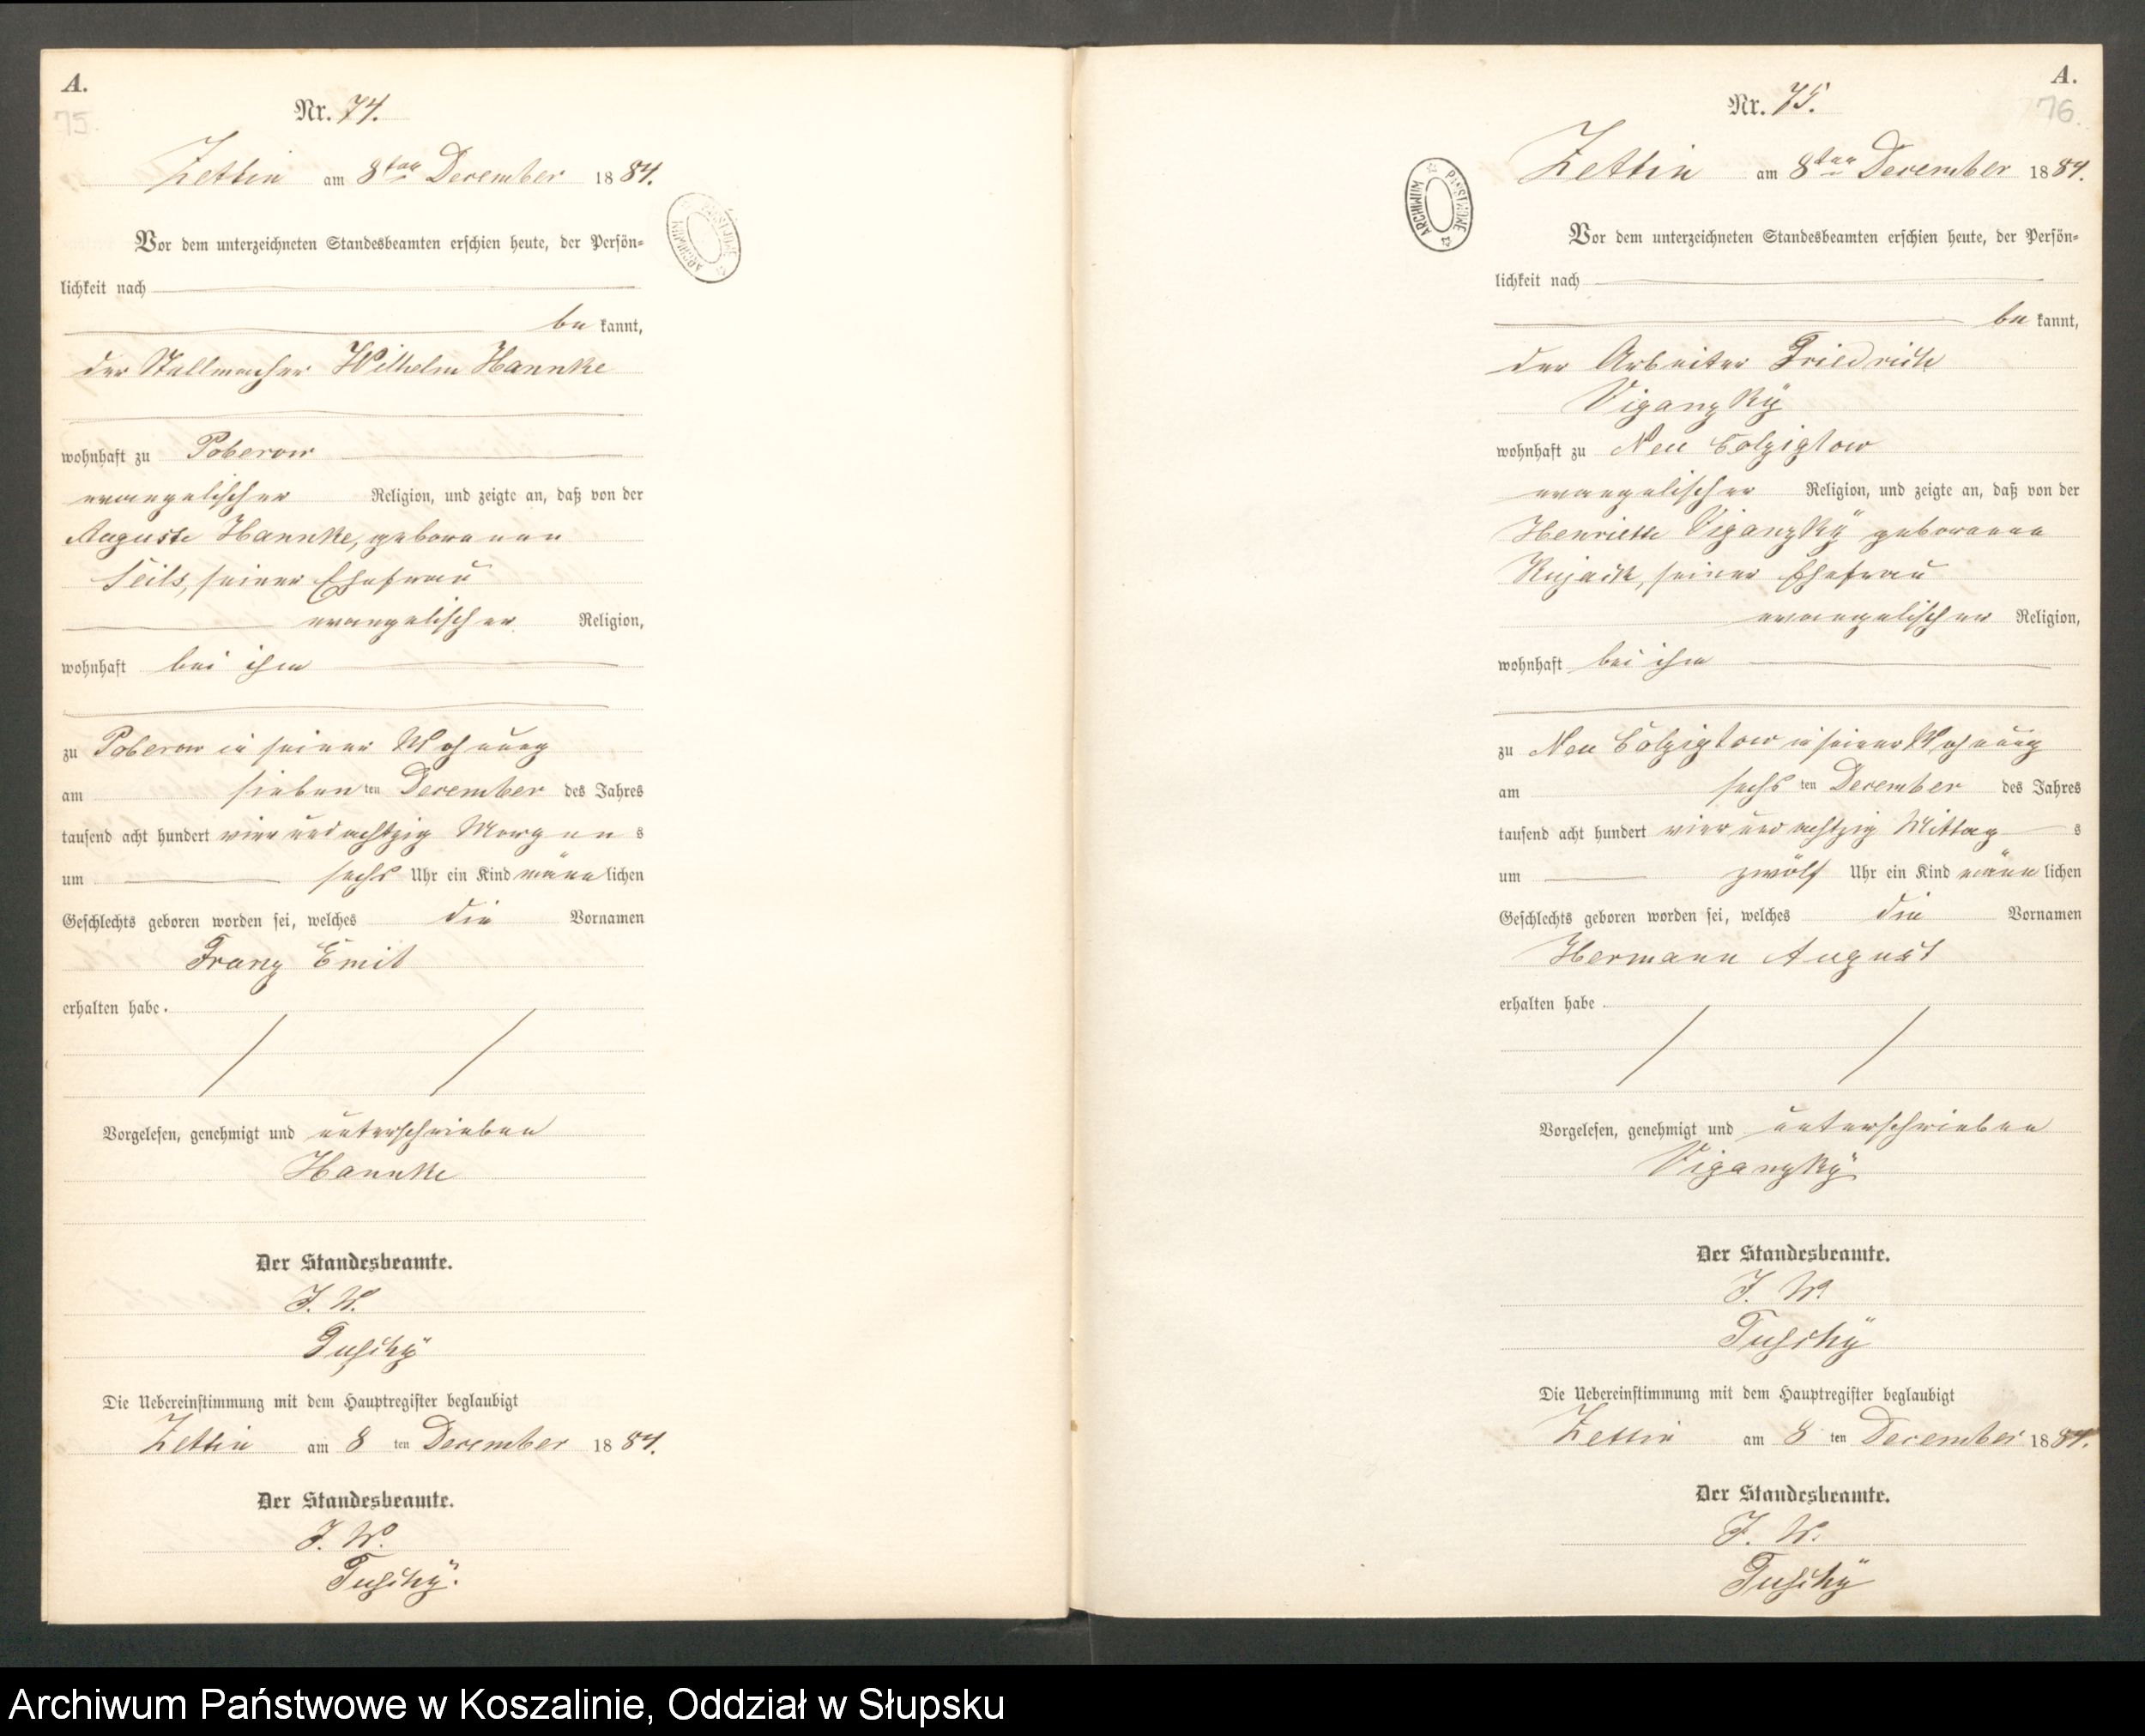 A.
75.
Nr. 74.
Zettin am 8ten December 1884.
Vor dem unterzeichneten Standesbeamten erschien heute, der Persön-
lichkeit nach
be kannt,
der Stellmacher Wilhelm Hannke
wohnhaft zu Poberow
evangelischer Religion, und zeigte an, daß von der
Auguste Hannke, geborenen
Seils, seiner Ehefrau
evangelischer Religion,
wohnhaft bei ihm
zu Poberow in seiner Wohnung
am sieben ten December des Jahres
tausend acht hundert vier und achtzig Morgen s
um sechs Uhr ein Kind männ lichen
Geschlechts geboren worden sei, welches die Vornamen
Franz Emil
erhalten habe.
Vorgelesen, genehmigt und unterschrieben
Hannke
Der Standesbeamte.
J. V.
Die Uebereinstimmung mit dem Hauptregister beglaubigt
Zettin am 8 ten December 1884.
Der Standesbeamte.
J. V.
ARCHIWUM PAŃSTWOWE
A.
76.
Nr. 75.
Zettin am 8ten December 1884.
Vor dem unterzeichneten Standesbeamten erschien heute, der Persön-
lichkeit nach
be kannt,
der Arbeiter Friedrich
Viganzkÿ
wohnhaft zu Neu Colziglow
evangelischer Religion, und zeigte an, daß von der
Henriette Viganzkÿ geborenen
Kujack, seiner Ehefrau
evangelischer Religion,
wohnhaft bei ihm
zu Neu Colziglow in seiner Wohnung
am sechs ten December des Jahres
tausend acht hundert vier und achtzig Mittag s
um zwölf Uhr ein Kind männ lichen
Geschlechts geboren worden sei, welches die Vornamen
Hermann August
erhalten habe
Vorgelesen, genehmigt und unterschrieben
Viganzkÿ
Der Standesbeamte.
J. V.
Die Uebereinstimmung mit dem Hauptregister beglaubigt
Zettin am 8 ten December 1884.
Der Standesbeamte.
J. V.
ARCHIWUM PAŃSTWOWE
Archiwum Państwowe w Koszalinie, Oddział w Słupsku